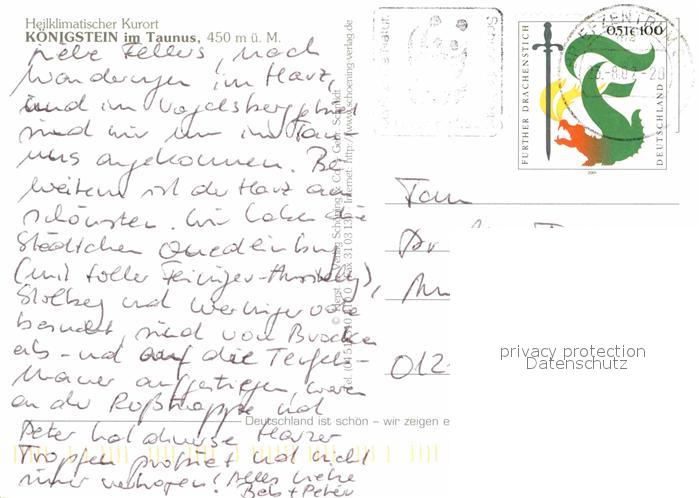 Heilklimatischer Kurort
KÖNIGSTEIN im Taunus, 450 m ü. M.
Liebe Fellers, nach
Wanderungen im Harz,
und im Vogelsberggebiet
sind wir nun im Tau-
nus angekommen. Bei
weitem ist der Harz am
schönsten. Wir haben die
Städtchen Quedlinburg
(mit toller Feininger-Ausstellung),
Stolberg und Wernigerode
besucht, sind vom Brocken
ab- und auf die Teufels-
mauer aufgestiegen, waren
an der Roßtrappe und
Peter hat diverse Harzer
Tropfen probiert und nicht
immer vertragen! Alles Liebe
+ Peter
Deutschland ist schön – wir zeigen e
Internet: http://www.schoening-verlag.de
FURTHER DRACHENSTICH
0,51€ 100
DEUTSCHLAND
2001
BRIEFZENTRUM
Fam
012
privacy protection
Datenschutz